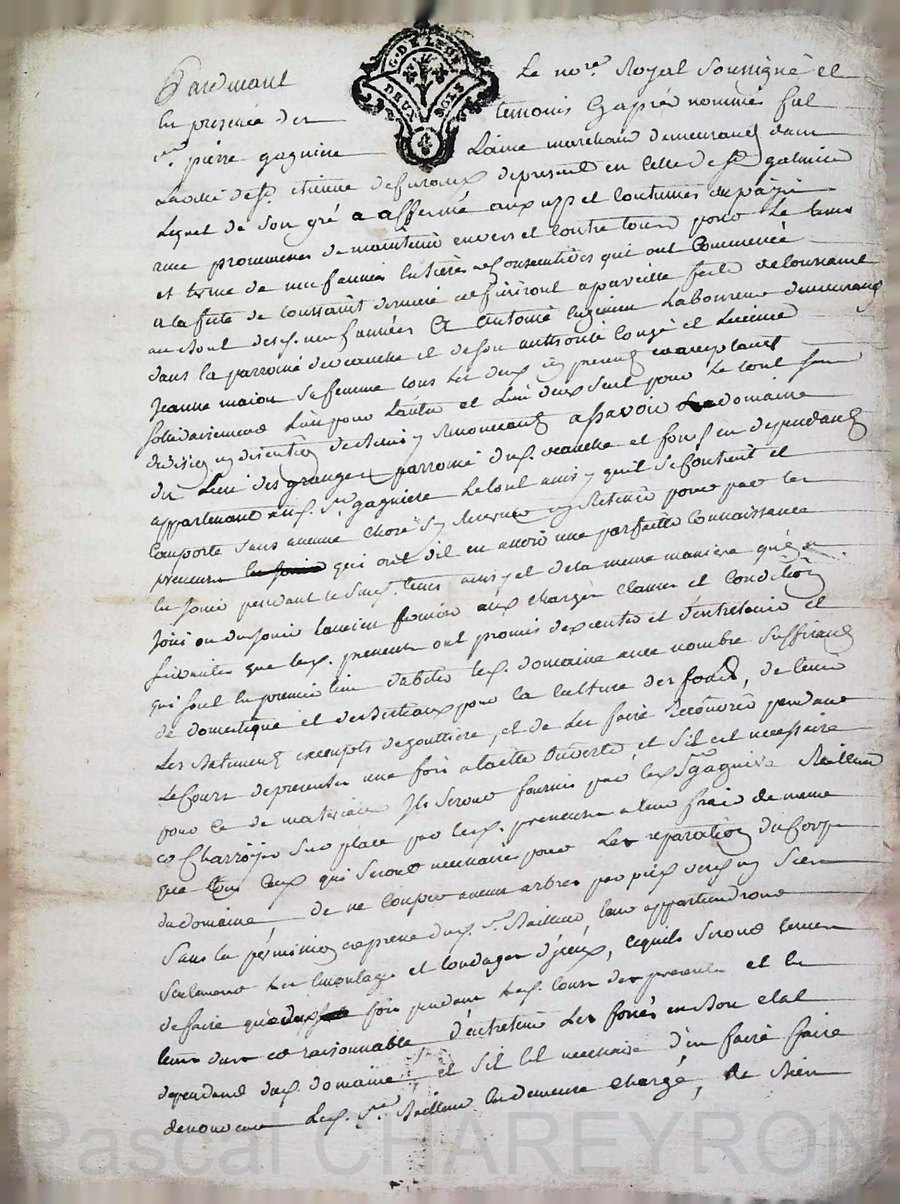 G. DE LYON
DEUX SOLS
Pardevant Le no.re Royal soussigné et
en presence des temoins Cy apré nommés fut
s.r pierre gagniere Lainé marchand demeurant dans
la ville de S.t etienne de furans de present en celle de S.t galmier
Lequel de son gré a affermé aux us et coutumes du pays
avec promesses de maintenir envers et contre tous pour Le tems
et terme de neuf années Entieres et Consecutives qui ont Commencé
a la fete de toussaint dernier et finiront a pareille fete de toussaint
au bout desd. neuf années a antoine Laboureur demeurant
dans la parroisse de veauche et de son authorité Congé et Licence
Jeanne maion sa femme tous Les deux cy presents acceptants
solidairement L'un pour L'autre et L'un deux seul pour Le tout sans
division ny discution de biens y Renoncants assavoir Le domaine
du Lieu des granges parroisse dud. veauche et fonds en dependants
appartenant aud. S.r gagniere Le tout ainsi qu'il se Contient et
Comporte sans aucune Chose s'y Reserver ny Retenir pour par les
preneurs qui ont dit en avoir une parfaitte Connaissance
en Jouir pendant led. tems et de la meme maniere qu'en a
Joui ou du Jouir l'ancien fermier aux charges clauses et Conditions
suivantes que lesd. preneurs ont promis d'executer et d'entretenir et
qui sont en premier lieu d'abiter led. domaine avec nombre suffisant
de domestiques et de Bestiaux pour la culture des fonds, de tenir
Les Batiments exempts de gouttiere, et de les faire Recouvrir pendant
Le Cours des presentes une fois a latte ouverte et s'il est necessaire
pour Ce de materiaux Ils seront fournis par led. S.r gagniere Bailleur
et Charroyés sur place par lesd. preneurs a leur frais de meme
que tous Ceux qui seront necessaires pour Les reparations du Corps
du domaine de ne couper aucun arbres par pied verds ny secs
sans la permission expresse dud. s.r Bailleur leur appartiendront
seulement Les emondages et tondages d'jceux, lesquels seront tenus
de faire fois pendant led. Cours des presentes et en
tems dus et raisonnable d'entretenir Les fossés en bon etat
dependants dud. domaine, et s'il est necessaire d'en faire faire
de nouveaux Led. s.r Bailleur en demeure chargé, de Bien
Pascal CHAREYRON